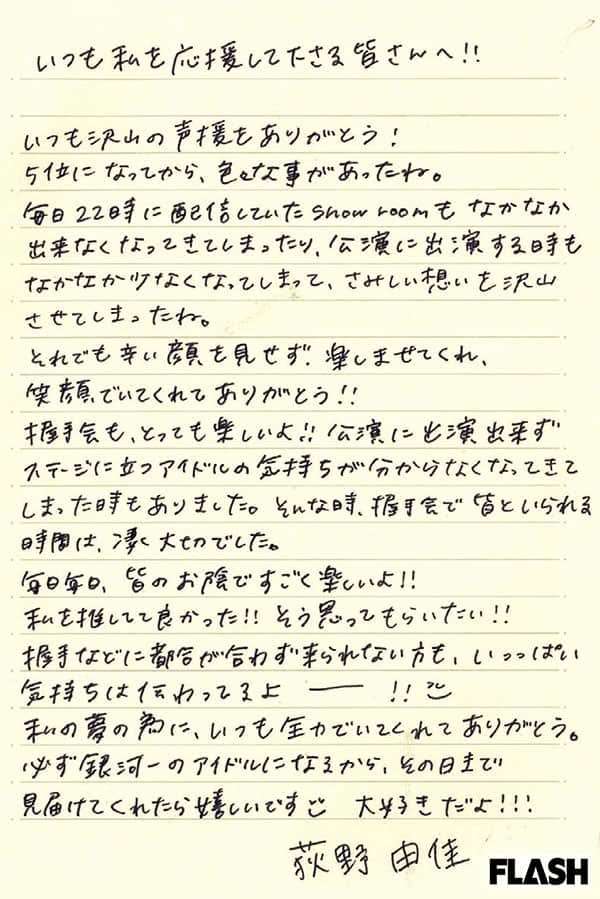 いつも私を応援して下さる皆さんへ!!
いつも沢山の声援をありがとう!
5位になってから、色々な事があったね。
毎日22時に配信していたshowroomもなかなか
出来なくなってきてしまったり、公演に出演する時も
なかなか少なくなってしまって、さみしい想いを沢山
させてしまったね。
それでも辛い顔を見せず、楽しませてくれ、
笑顔でいてくれてありがとう!!
握手会も、とっても楽しいよ!! 公演に出演出来ず
ステージに立つアイドルの気持ちが分からなくなってきて
しまった時もありました。そんな時、握手会で皆といられる
時間は、凄く大切でした。
毎日毎日、皆のお陰ですごく楽しいよ!!
私を推してて良かった!! そう思ってもらいたい!!
握手などに都合が合わず来られない方も、いっっぱい
気持ちは伝わってるよ ー !!
私の夢の為に、いつも全力でいてくれてありがとう。
必ず銀河一のアイドルになるから、その日まで
見届けてくれたら嬉しいです 大好きだよ!!!
荻野 由佳
FLASH